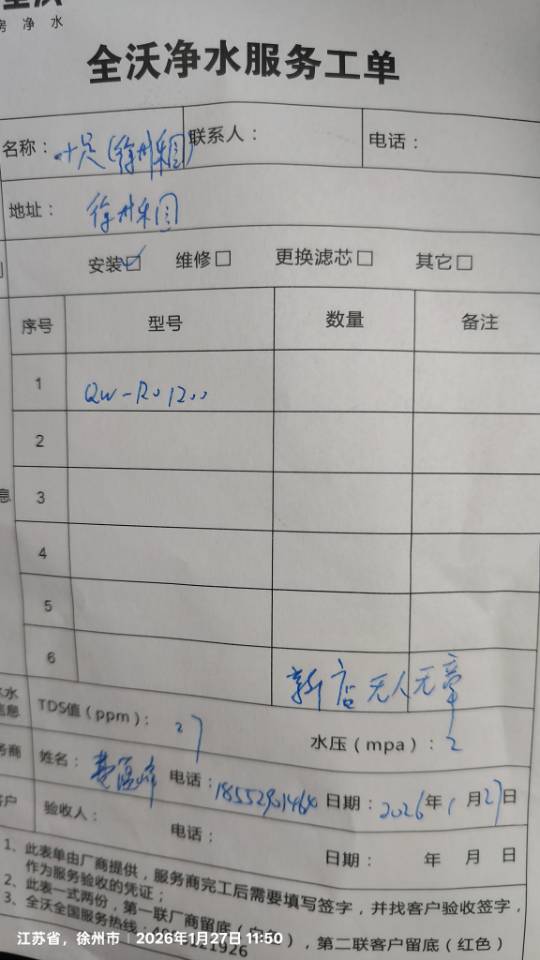 房净水
全沃净水服务工单
名称： 联系人： 电话：
地址：
安装☑ 维修□ 更换滤芯□ 其它□
序号 型号 数量 备注
1 QW-RO1200
2
3
4
5
6
新店无人无章
TDS值（ppm）：27 水压（mpa）：2
姓名： 电话： 日期：2026年1月27日
验收人： 电话： 日期： 年 月 日
1、此表单由厂商提供，服务商完工后需要填写签字，并找客户验收签字，
作为服务验收的凭证；
2、此表一式两份，第一联厂商留底，第二联客户留底（红色）
3、全沃全国服务热线：
江苏省，徐州市 | 2026年1月27日 11:50